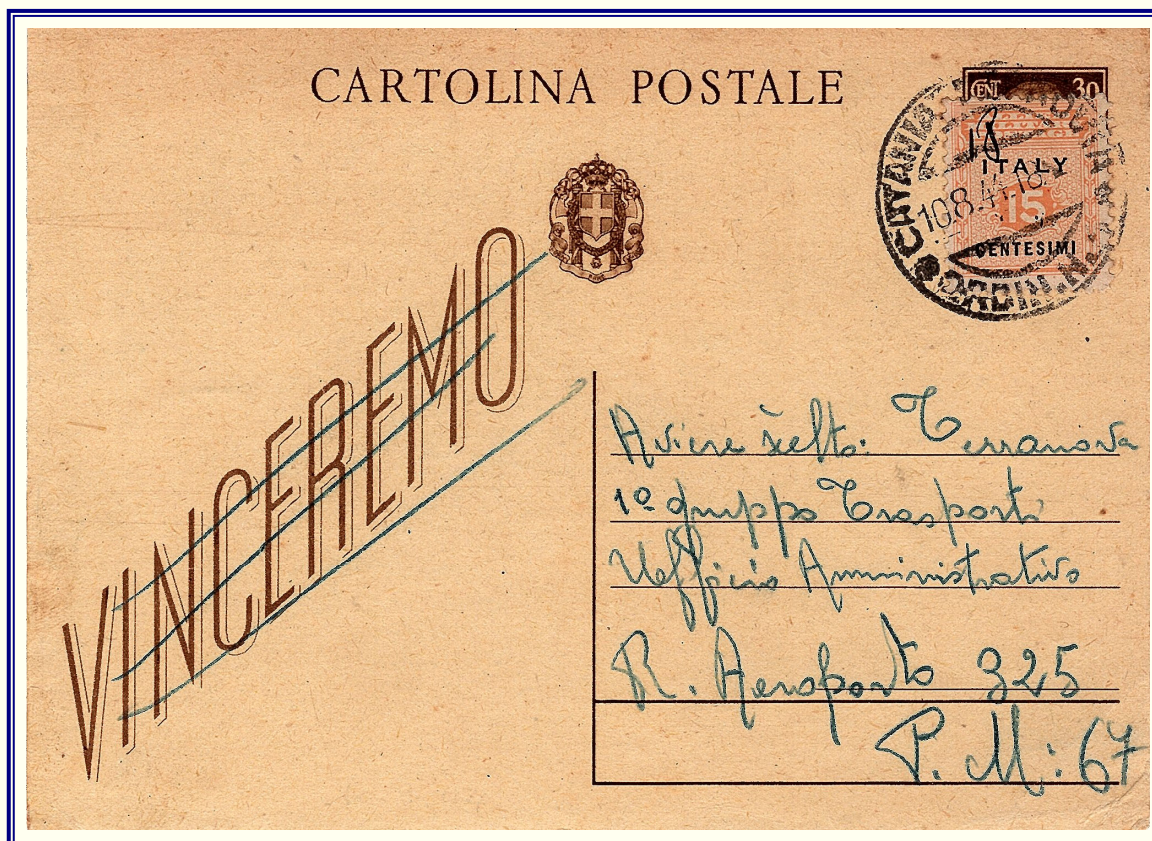 CARTOLINA POSTALE
CENT 30
ITALY
15
CENTESIMI
10.8.44.18
CATANIA
VINCEREMO
Aviere scelto: Terranova
1º gruppo Trasporti
Ufficio Amministrativo
R. Aeroporto 325
P. M: 67